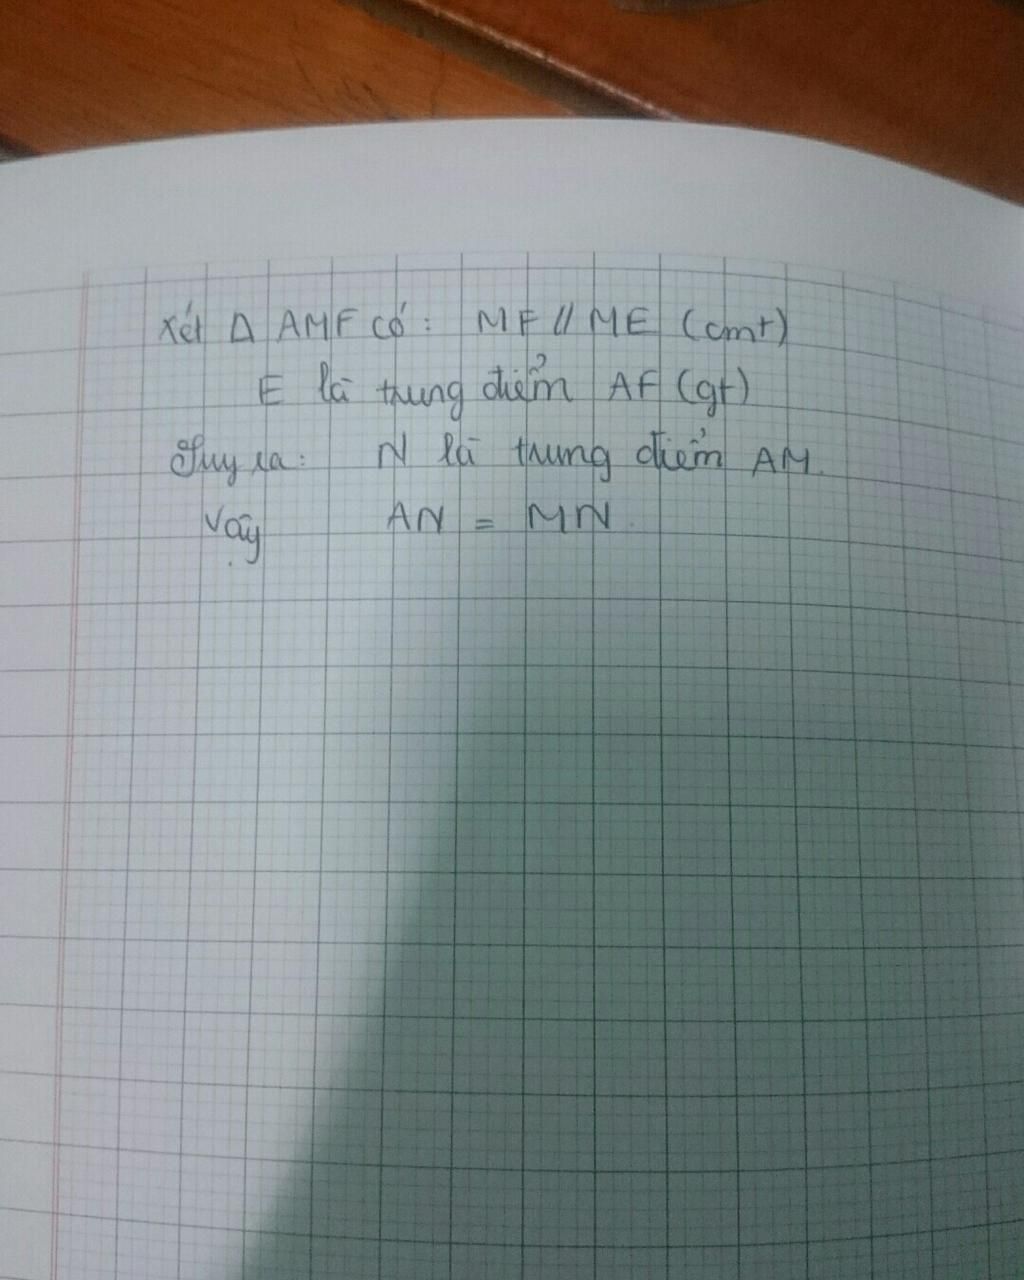 Xét Δ AMF có : MF // ME (cmt)
E là trung điểm AF (gt)
Suy ra : N là trung điểm AM.
Vậy AN = MN.